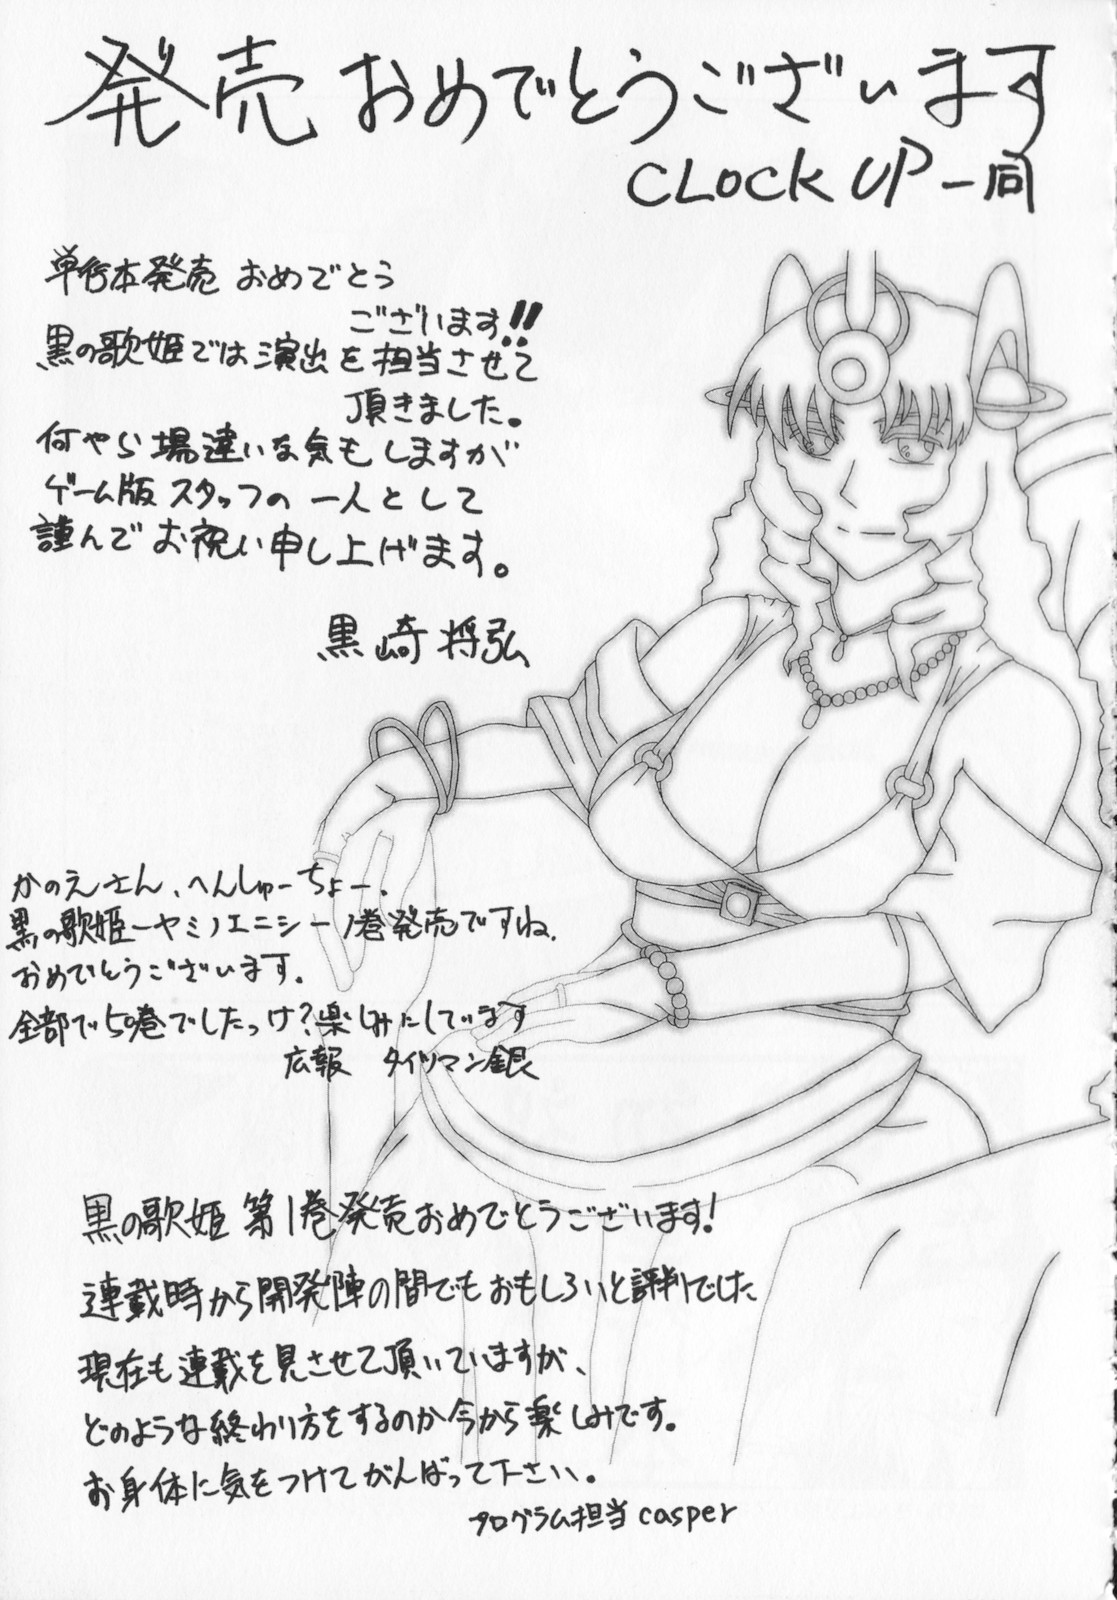 発売 おめでとうございます
CLOCK UP 一同
単行本発売 おめでとう
ございます!!
黒の歌姫では演出を担当させて
頂きました。
何やら場違いな気もしますが
ゲーム版スタッフの一人として
謹んでお祝い申し上げます。
黒崎 将弘
かのえさん、へんしゅーちょー、
黒の歌姫ーヤミノエニシー1巻発売ですね、
おめでとうございます。
全部で50巻でしたっけ?楽しみにしています
広報 タイツマン銀
黒の歌姫 第1巻発売おめでとうございます!
連載時から開発陣の間でもおもしろいと評判でした
現在も連載を見させて頂いていますが、
どのような終わり方をするのか今から楽しみです。
お身体に気をつけてがんばって下さい。
プログラム担当 casper